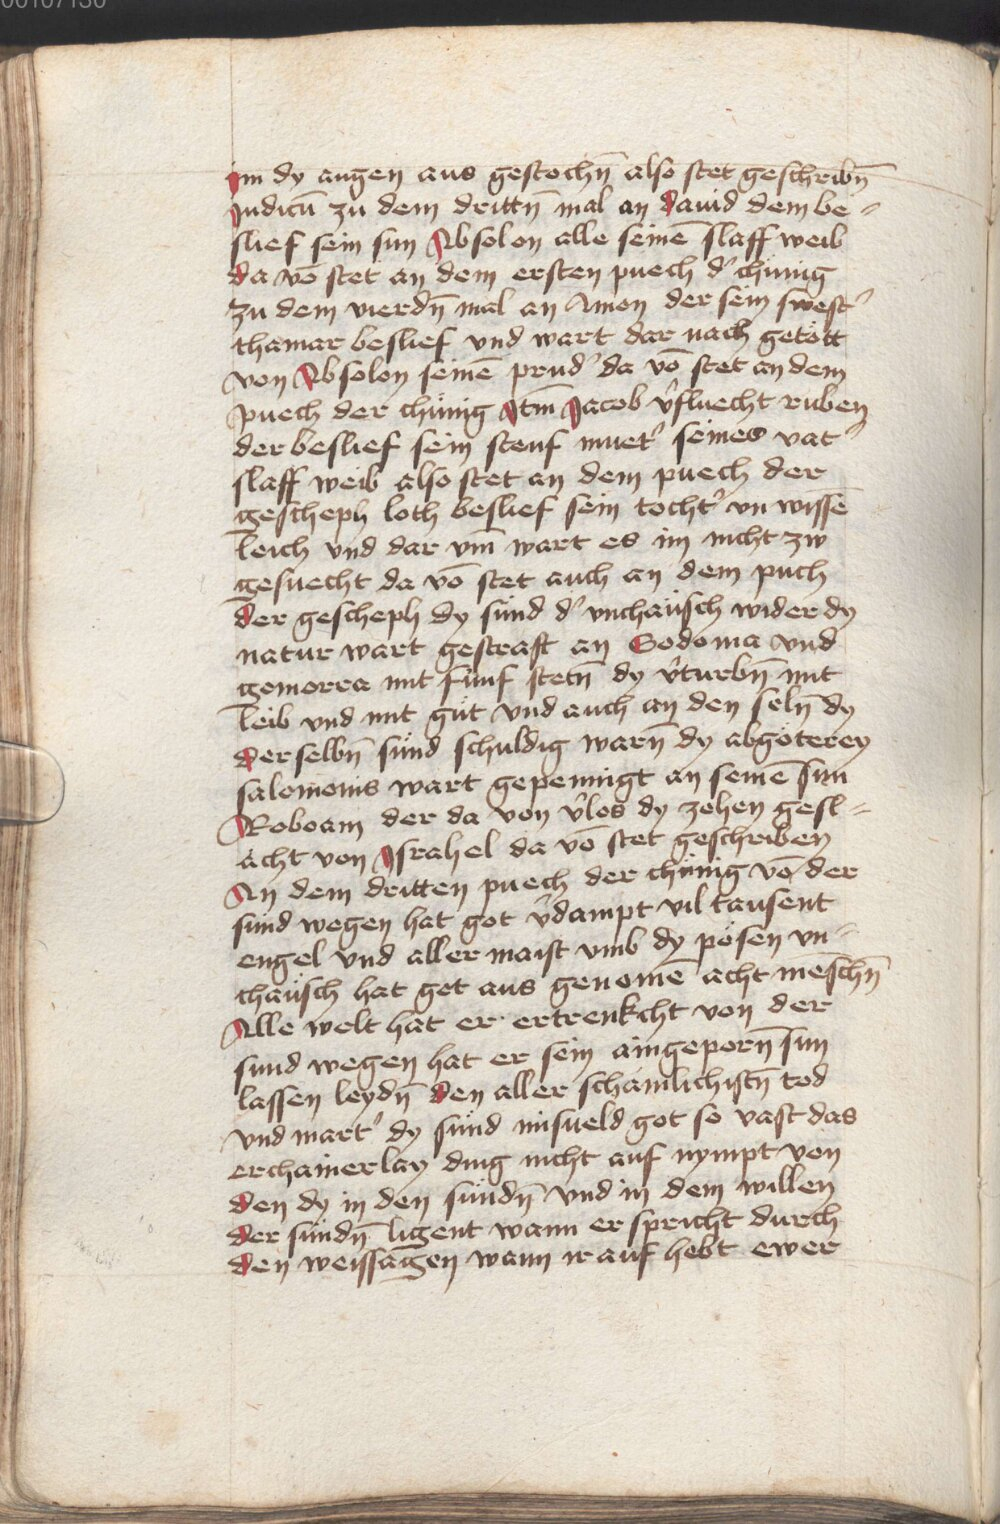 00107130
im dy augen aus gestochn̄ also stet geschribn̄
Judicū zu dem drittn̄ mal an Dauid dem be-
slief sein sun Absolon alle seinē slaff weib
da vō stet an dem ersten puech d' chünig
zu dem vierdn̄ mal an Amon der sein swest'
thamar beslief vnd wart dar nach getött
von Absolon seinē prud' da vō stet an dem
puech der chünig Itm̄ Jacob v'fluecht ruben
der beslief sein steuf muet' seines vat'
slaff weib also stet an dem puech der
gescheph loth beslief sein tocht' vn wissē
leich vnd dar vm̄ wart es im nicht zw
gesuecht da vō stet auch an dem puch
der gescheph dy sünd d' vnchäusch wider dy
natur wart gestraft an Sodoma vnd
gemorra mit fünf stetn̄ dy v'turbn̄ mit
leib vnd mit güt vnd auch an den seln̄ dy
der selbn̄ sünd schuldig warn̄ dy abgöterey
salomonis wart gepeinigt an seinē sun
Roboam der da von v'los dy zehen gesl-
ächt von Israhel da vō stet geschriben
An dem dritten puech der chünig vō der
sünd wegen hat got v'dampt vil tausent
engel vnd aller maist vmb dy pösen vn-
chäusch hat got aus genomē acht mēschn̄
Alle welt hat er ertrenkcht von der
sünd wegen hat er sein aingeporn̄ sun
lassen leydn̄ den aller schämlichistn̄ tod
vnd mart' dy sünd misueld got so vast das
er chainerlay ding nicht auf nympt von
den dy in den sündn̄ vnd in dem willen
der sündn̄ ligent wann er spricht durch
den weissagen wann ir auf hebt ewer